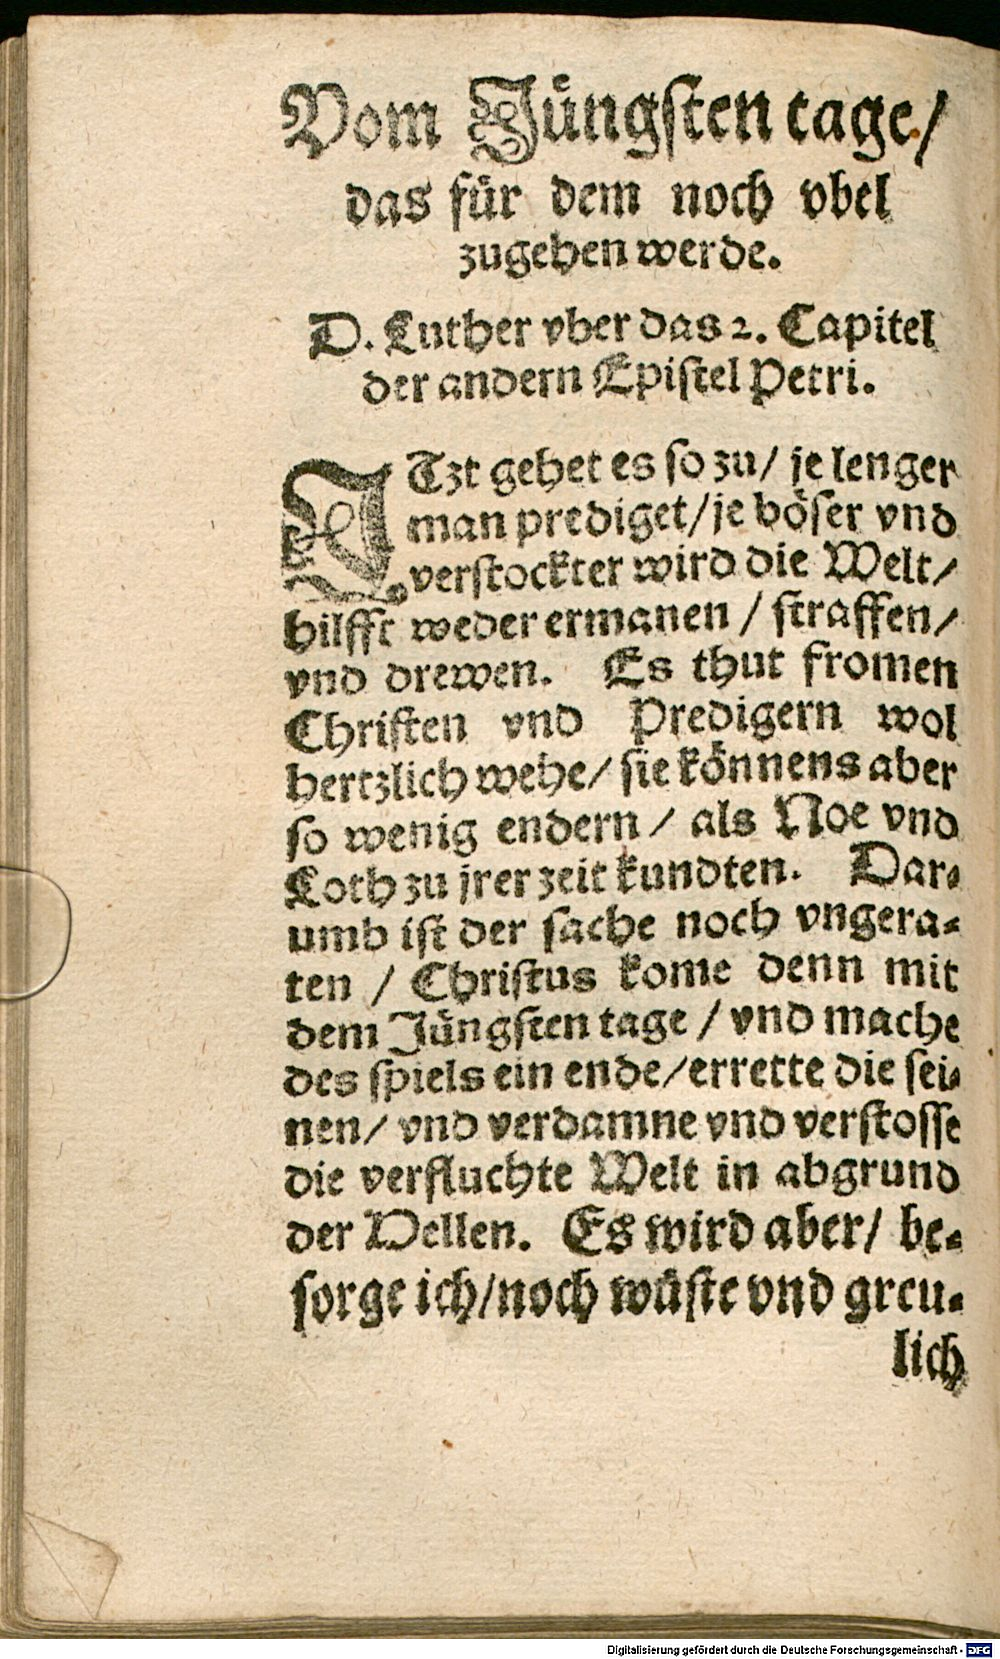 Vom Jüngsten tage/
das für dem noch vbel
zugehen werde.
D. Luther vber das 2. Capitel
der andern Epistel Petri.
ITzt gehet es so zu/ je lenger
man prediget/ je böser vnd
verstockter wird die Welt/
hilfft weder ermanen / straffen/
vnd drewen. Es thut fromen
Christen vnd Predigern wol
hertzlich wehe/ sie könnens aber
so wenig endern / als Noe vnd
Loth zu jrer zeit kundten. Dar-
umb ist der sache noch vngera-
ten / Christus kome denn mit
dem Jüngsten tage / vnd mache
des spiels ein ende/ errette die sei-
nen/ vnd verdamne vnd verstosse
die verfluchte Welt in abgrund
der Hellen. Es wird aber/ be-
sorge ich/ noch wüste vnd greu-
lich
Digitalisierung gefördert durch die Deutsche Forschungsgemeinschaft - DFG